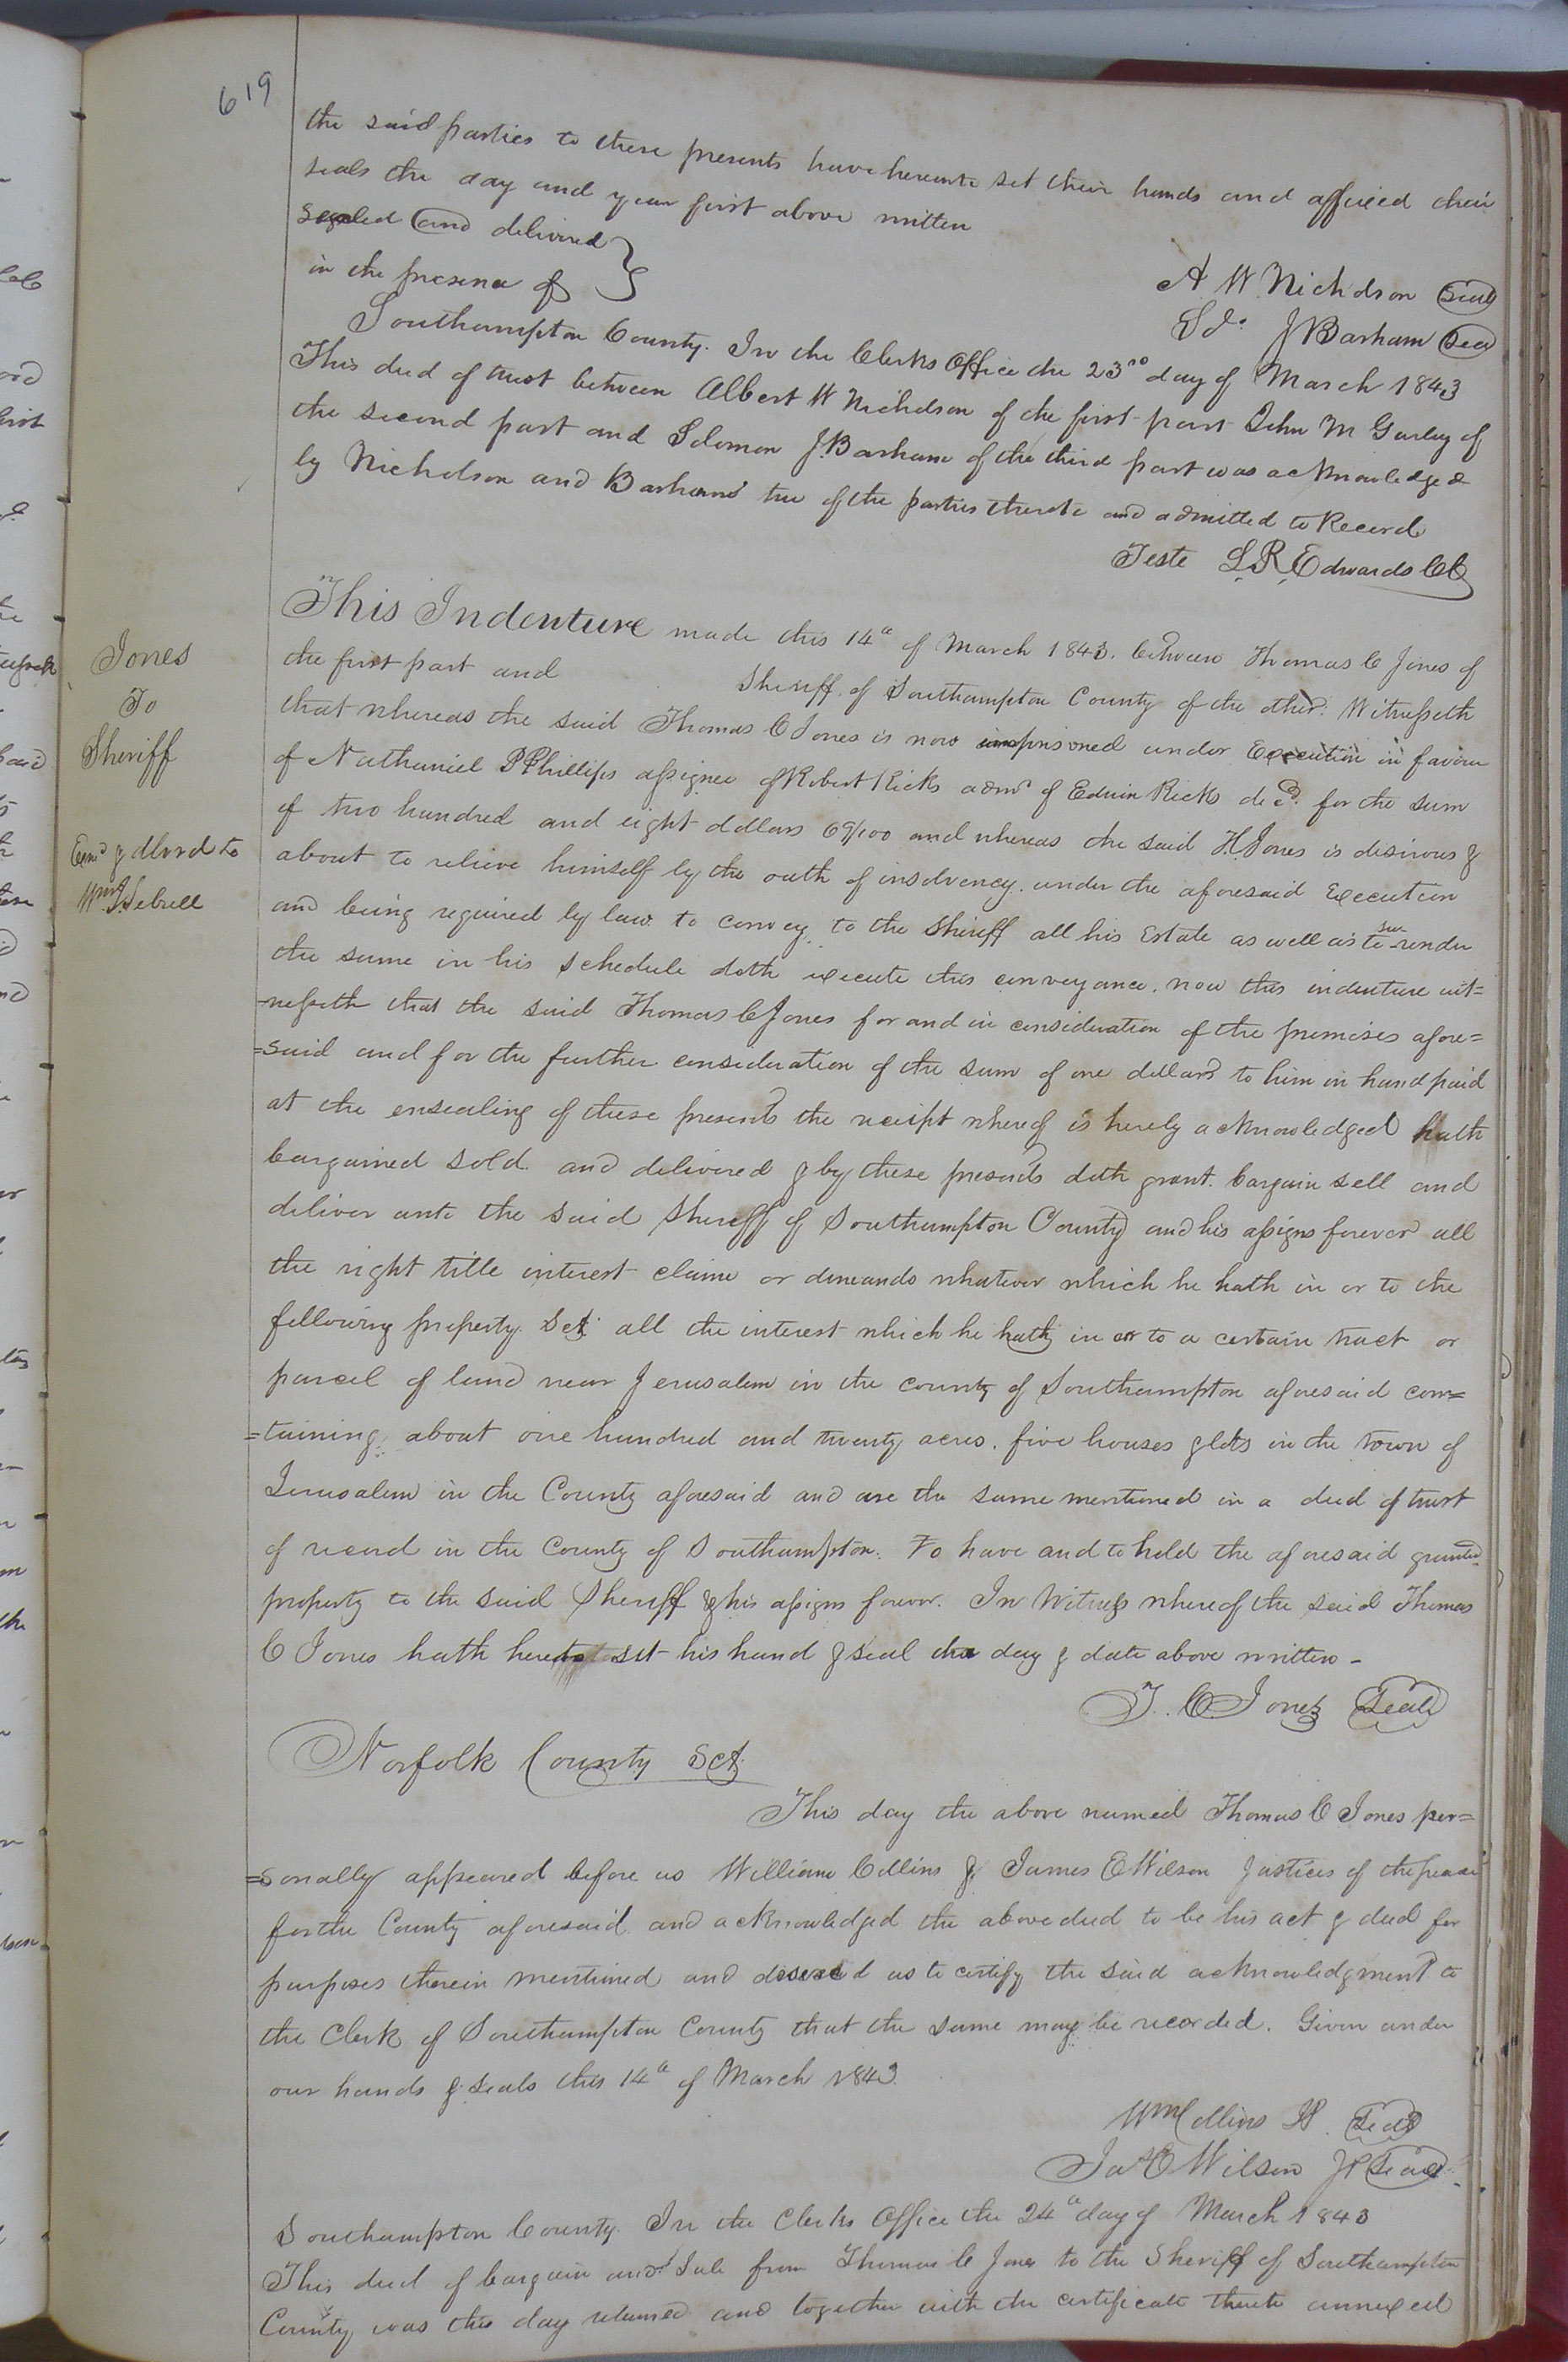 619
the said parties to these presents have hereunto set their hands and affixed their
seals the day and year first above written
Sealed and delivered
in the presence of
A W Nicholson Seal
Sol. J Barham Seal
Southampton County. In the Clerks Office the 23rd day of March 1843
This deed of trust between Albert W Nicholson of the first part John M Gurley of
the second part and Solomon J. Barham of the third part was acknowledged
by Nicholson and Barham two of the parties thereto and admitted to Record
Teste L. R. Edwards CC
Jones
To
Sheriff
Exmd & dlvrd to
Wm J. Sebrell
This Indenture made this 14th of March 1843. between Thomas C Jones of
the first part and Sheriff of Southampton County of the other. Witnesseth
that whereas the said Thomas C Jones is now imprisoned under Execution in favour
of Nathaniel P Phillips assignee of Robert Ricks admr of Edwin Ricks decd. for the sum
of two hundred and eight dollars 69/100 and whereas the said Jones is desirous &
about to relieve himself by the oath of insolvency. under the aforesaid Execution
and being required by law to convey to the Sheriff all his Estate as well as to surrender
the same in his schedule doth execute this conveyance. now this indenture wit=
=nesseth that the said Thomas C Jones for and in consideration of the premises afore=
=said and for the further consideration of the sum of one dollar to him in hand paid
at the ensealing of these presents the receipt whereof is hereby acknowledged hath
bargained sold. and delivered & by these presents doth grant. bargain sell and
deliver unto the said Sheriff of Southampton County and his assigns forever all
the right title interest claim or demands whatever which he hath in or to the
following property. Sct. all the interest which he hath in or to a certain tract or
parcel of land near Jerusalem in the county of Southampton aforesaid con=
=taining about one hundred and twenty acres. five houses & lots in the town of
Jerusalem in the County aforesaid and are the same mentioned in a deed of trust
of record in the County of Southampton. To have and to hold the aforesaid granted
property to the said Sheriff & his assigns forever. In Witness whereof the said Thomas
C Jones hath hereto set his hand & seal the day & date above written -
T. C. Jones Seal
Norfolk County Sct.
This day the above named Thomas C Jones per=
=sonally appeared before us William Collins & James E Wilson Justices of the peace
for the County aforesaid and acknowledged the above deed to be his act & deed for
purposes therein mentioned and desired us to certify the said acknowledgment to
the Clerk of Southampton County that the same may be recorded. Given under
our hands & seals this 14th of March 1843.
Wm Collins JP. Seal
Jas E Wilson JP Seal
Southampton County. In the Clerks Office the 24th day of March 1843
This deed of bargain and Sale from Thomas C Jones to the Sheriff of Southampton
County was this day returned and together with the certificate thereto annexed